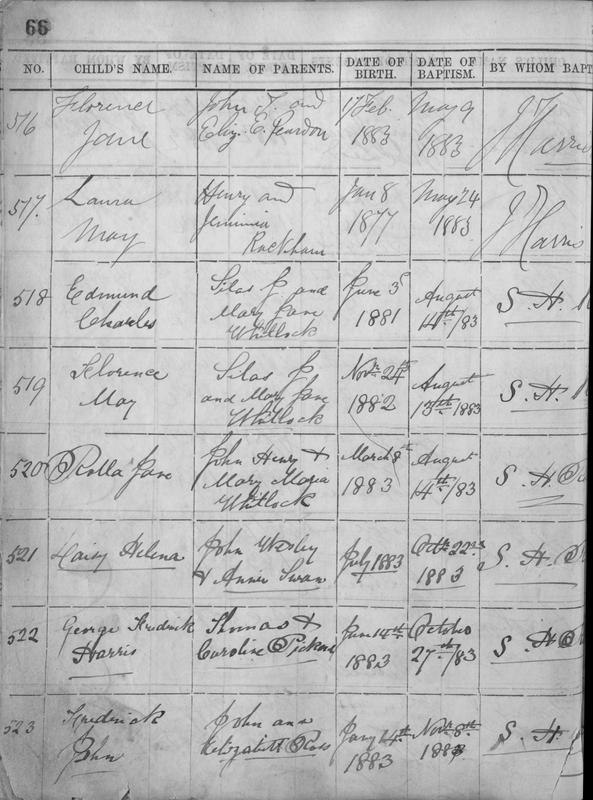 66
NO. CHILD'S NAME. NAME OF PARENTS. DATE OF BIRTH. DATE OF BAPTISM. BY WHOM BAPT
576 Florence John T. and 17 Feb. May 9
Jane Eliz. C. Peardon 1883 1883 J Harris
517. Laura Henry and Jan 8 May 24
May Jemimia 1877 1883 J Harris
Rackham
518 Edmund Silas J and June 3 August
Charles Mary Jane 1881 14th/83 S. H.
Whitlock
519 Florence Silas J Novr 24th August
May and Mary Jane 1882 13th 1883 S. H.
Whitlock
520 Rolla Jane John Henry + March 8th August
Mary Maria 1883 14th/83 S. H
Whitlock
521 Daisy Helena John Wesley July 1883 Octr 22nd S. H.
+ Annie Swan 1883
522 George Fredrick Thomas + June 14th October
Harris Caroline Pickard 1883 27th/83 S. H
523 Fredrick John and Jany 14th Novr 8th
John Elizabeth Ross 1883 1883 S. H